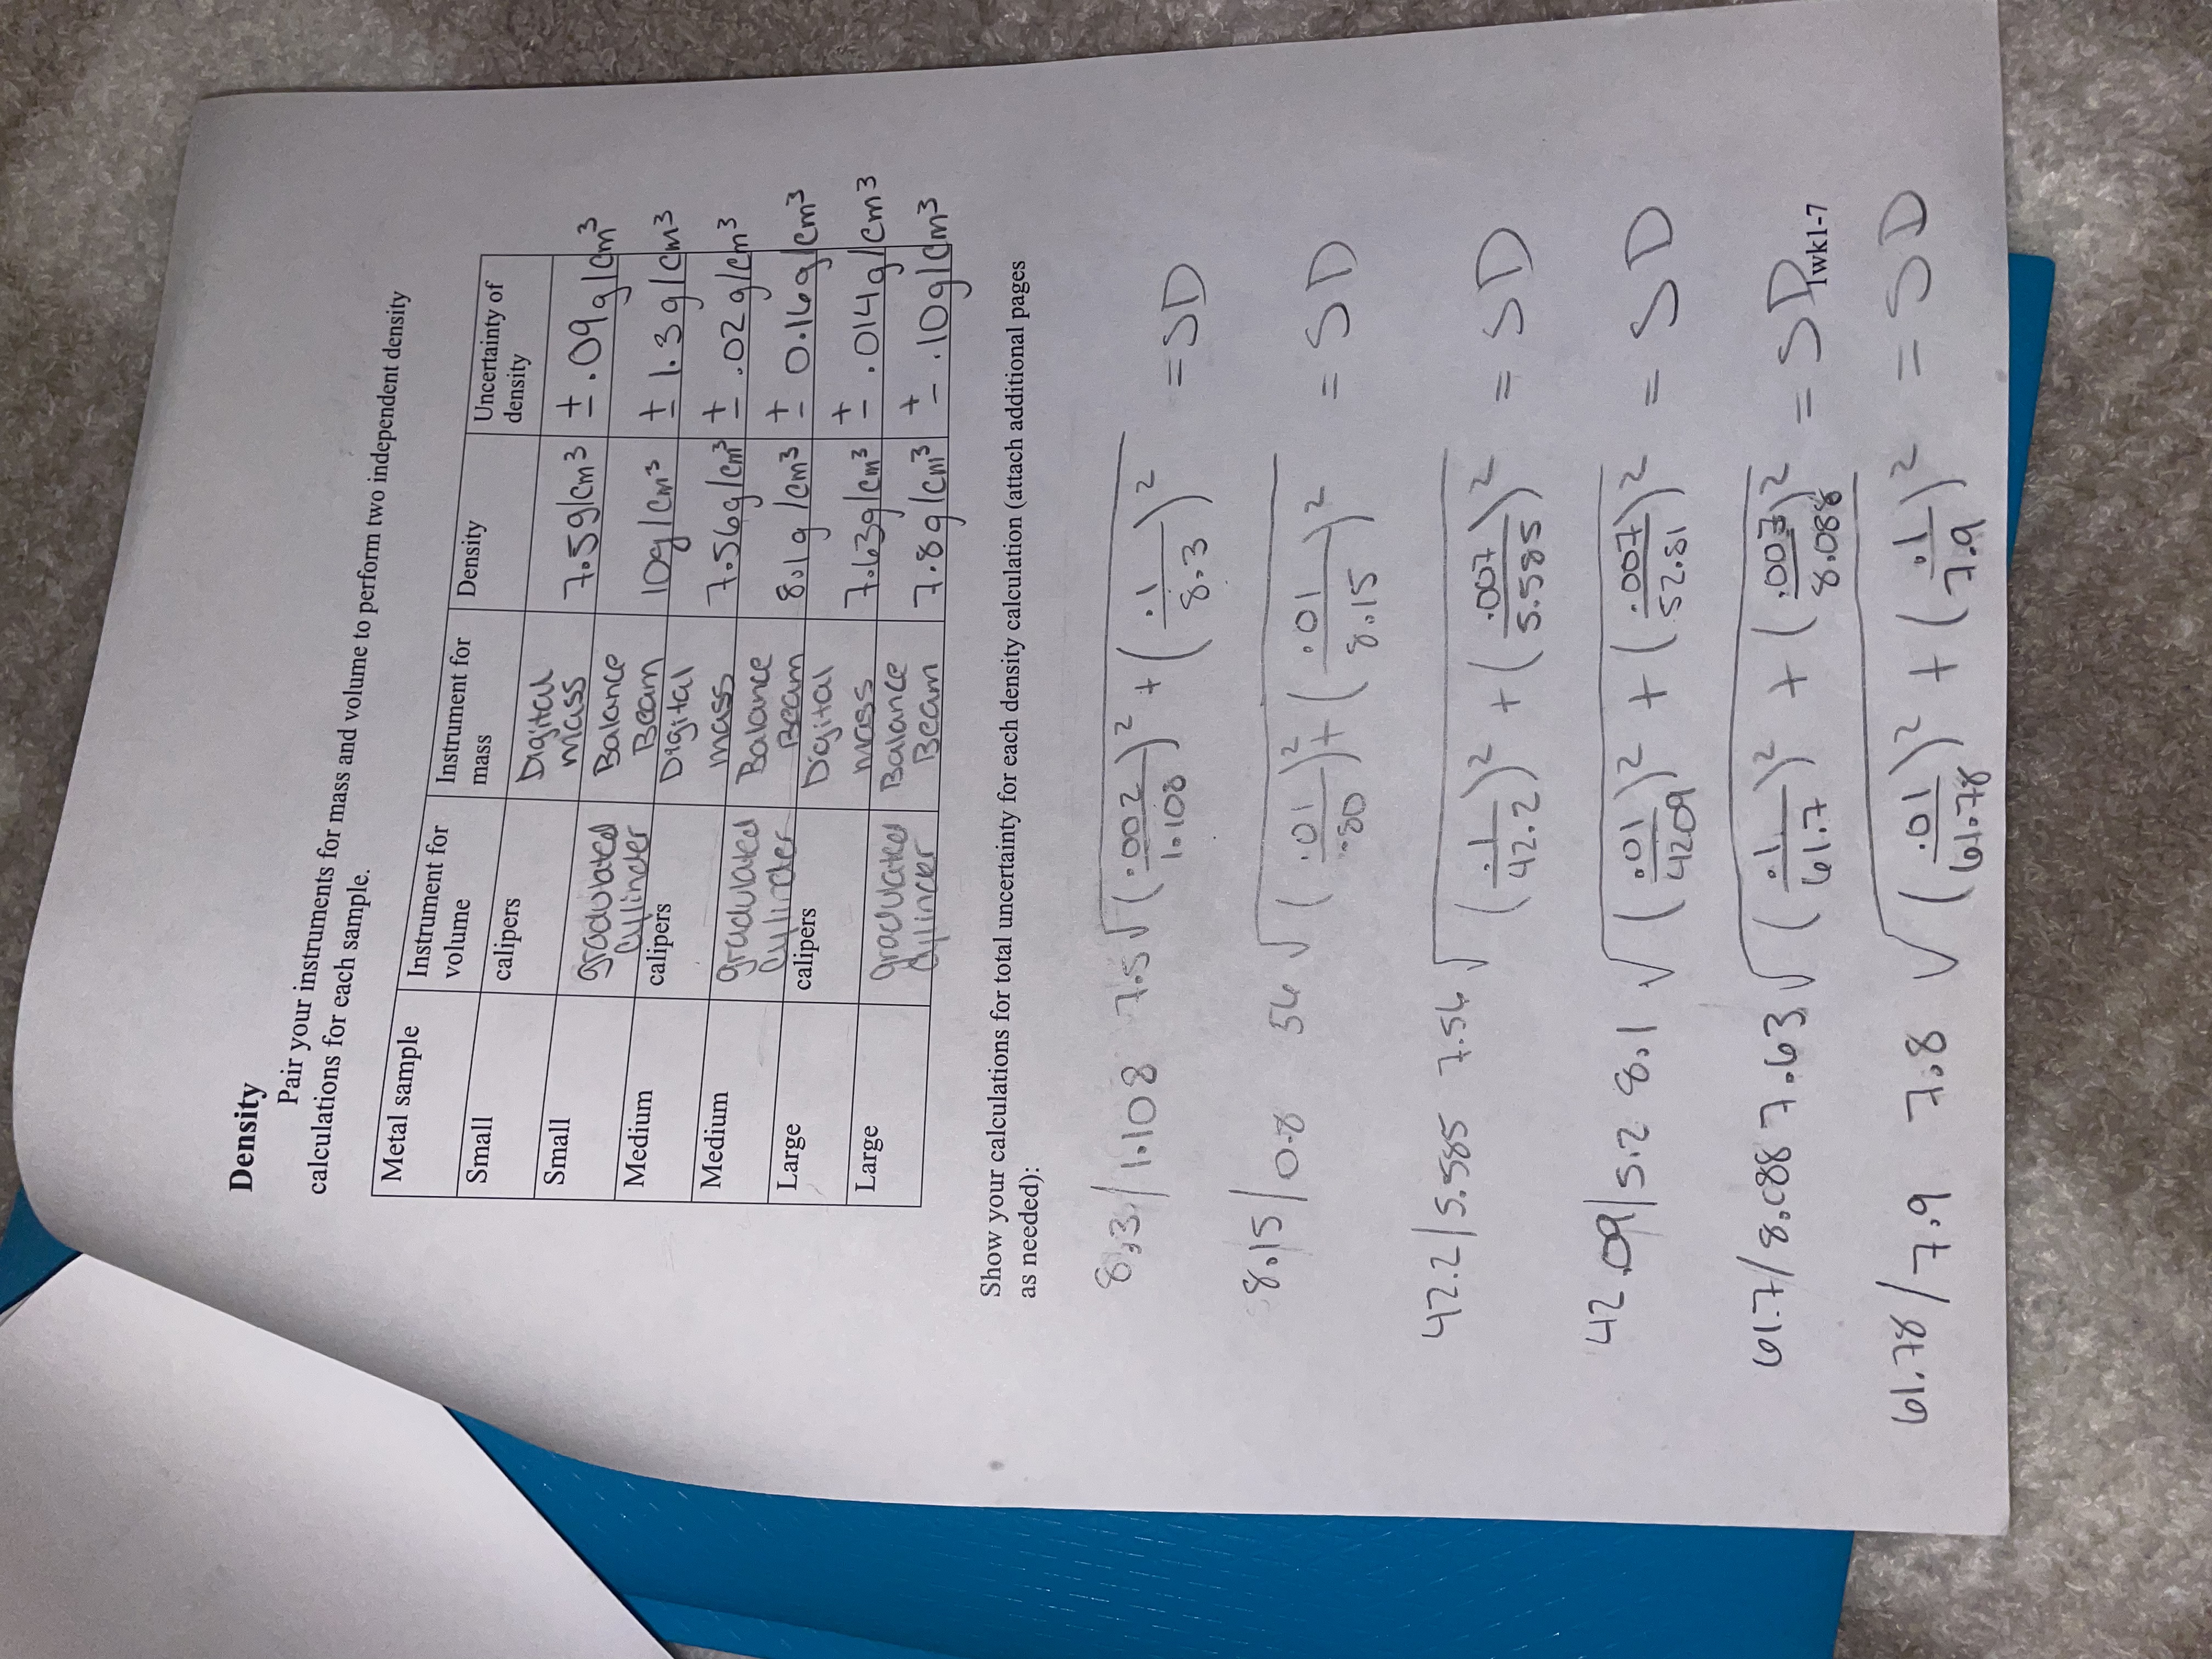 Density
Pair your instruments for mass and volume to perform two independent density
calculations for each sample.
Metal sample | Instrument for volume | Instrument for mass | Density | Uncertainty of density
Small | calipers | Digital mass | 7.5g/cm³ | ± .09g/cm³
Small | graduated cylinder | Balance Beam | 10g/cm³ | ± 1.3g/cm³
Medium | calipers | Digital mass | 7.56g/cm³ | ± .02g/cm³
Medium | graduated cylinder | Balance Beam | 8.1g/cm³ | ± 0.16g/cm³
Large | calipers | Digital mass | 7.63g/cm³ | ± .014g/cm³
Large | graduated cylincer | Balance Beam | 7.8g/cm³ | ± .10g/cm³
Show your calculations for total uncertainty for each density calculation (attach additional pages
as needed):
8.3/1.108 7.5√(.002/1.108)² + (.1/8.3)² = SD
8.15/0.8 √(.01/.80)² + (.01/8.15)² = SD
42.2/5.585 7.56√(.1/42.2)² + (.007/5.585)² = SD
42.09/5.2 8.1√(.01/4209)² + (.007/52.81)² = SD
61.7/8.088 7.63√(.1/61.7)² + (.007/8.088)² = SD
1wk1-7
61.78/7.9 7.8√(.01/61.78)² + (.1/7.9)² = SD